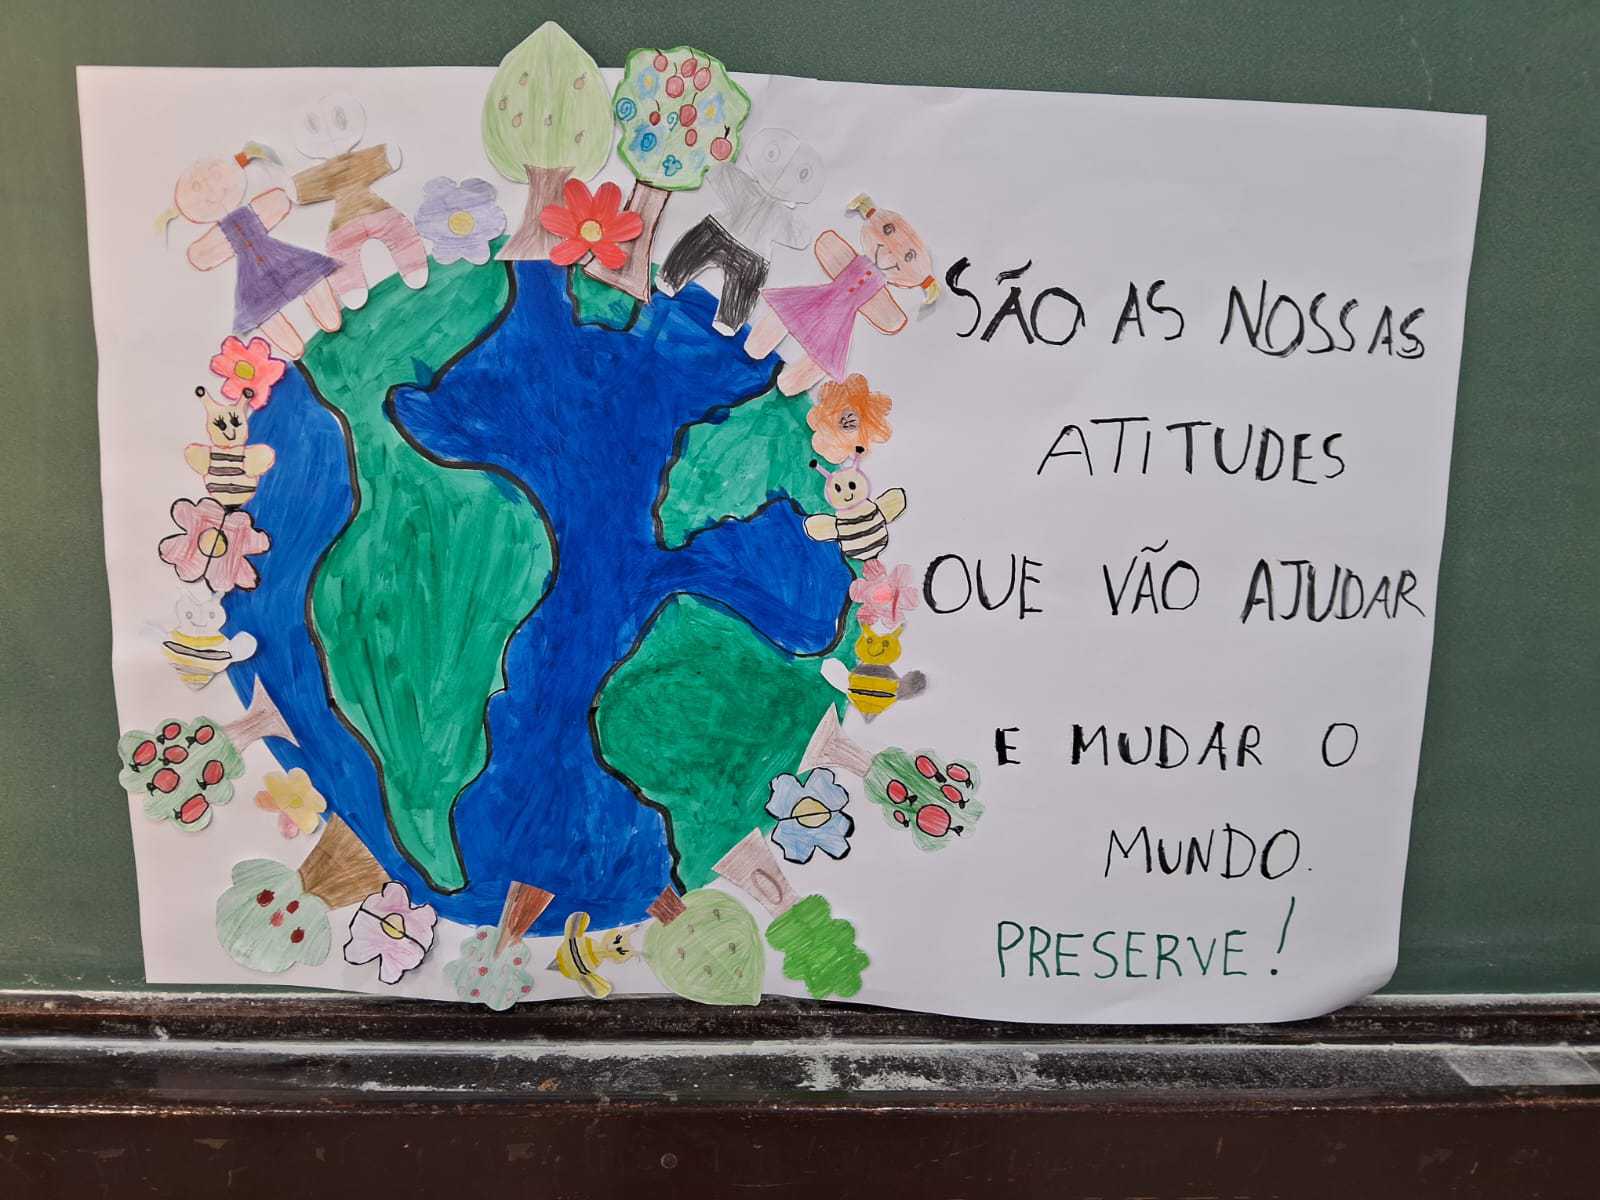 SÃO AS NOSSAS
ATITUDES
QUE VÃO AJUDAR
E MUDAR O
MUNDO.
PRESERVE!